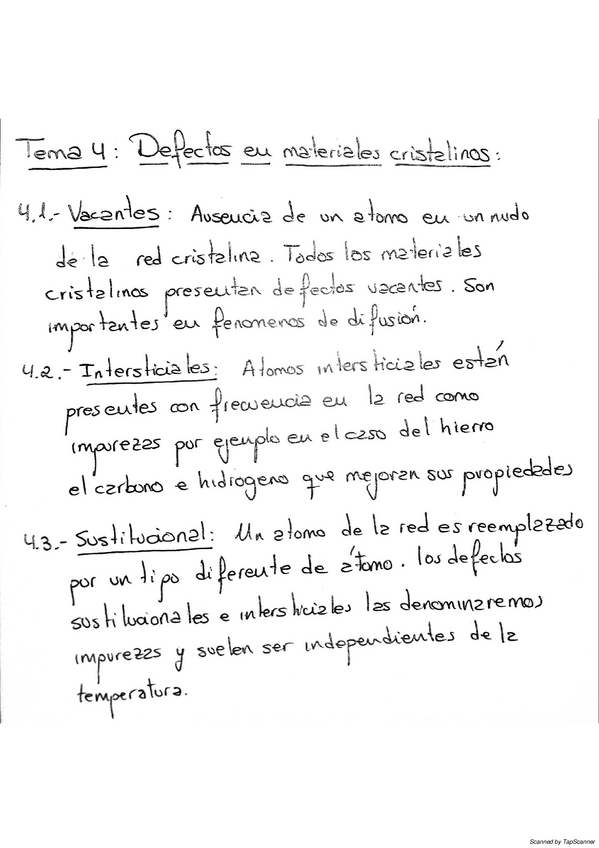 Tema 4: Defectos en materiales cristalinos:
4.1.- Vacantes: Ausencia de un atomo en un nudo
de la red cristalina. Todos los materiales
cristalinos presentan defectos vacantes. Son
importantes en fenomenos de difusión.
4.2.- Intersticiales: Atomos intersticiales están
presentes con frecuencia en la red como
impurezas por ejemplo en el caso del hierro
el carbono e hidrogeno que mejoran sus propiedades
4.3.- Sustitucional: Un atomo de la red es reemplazado
por un tipo diferente de átomo. los defectos
sustitucionales e intersticiales las denominaremos
impurezas y suelen ser independientes de la
temperatura.
Scanned by TapScanner